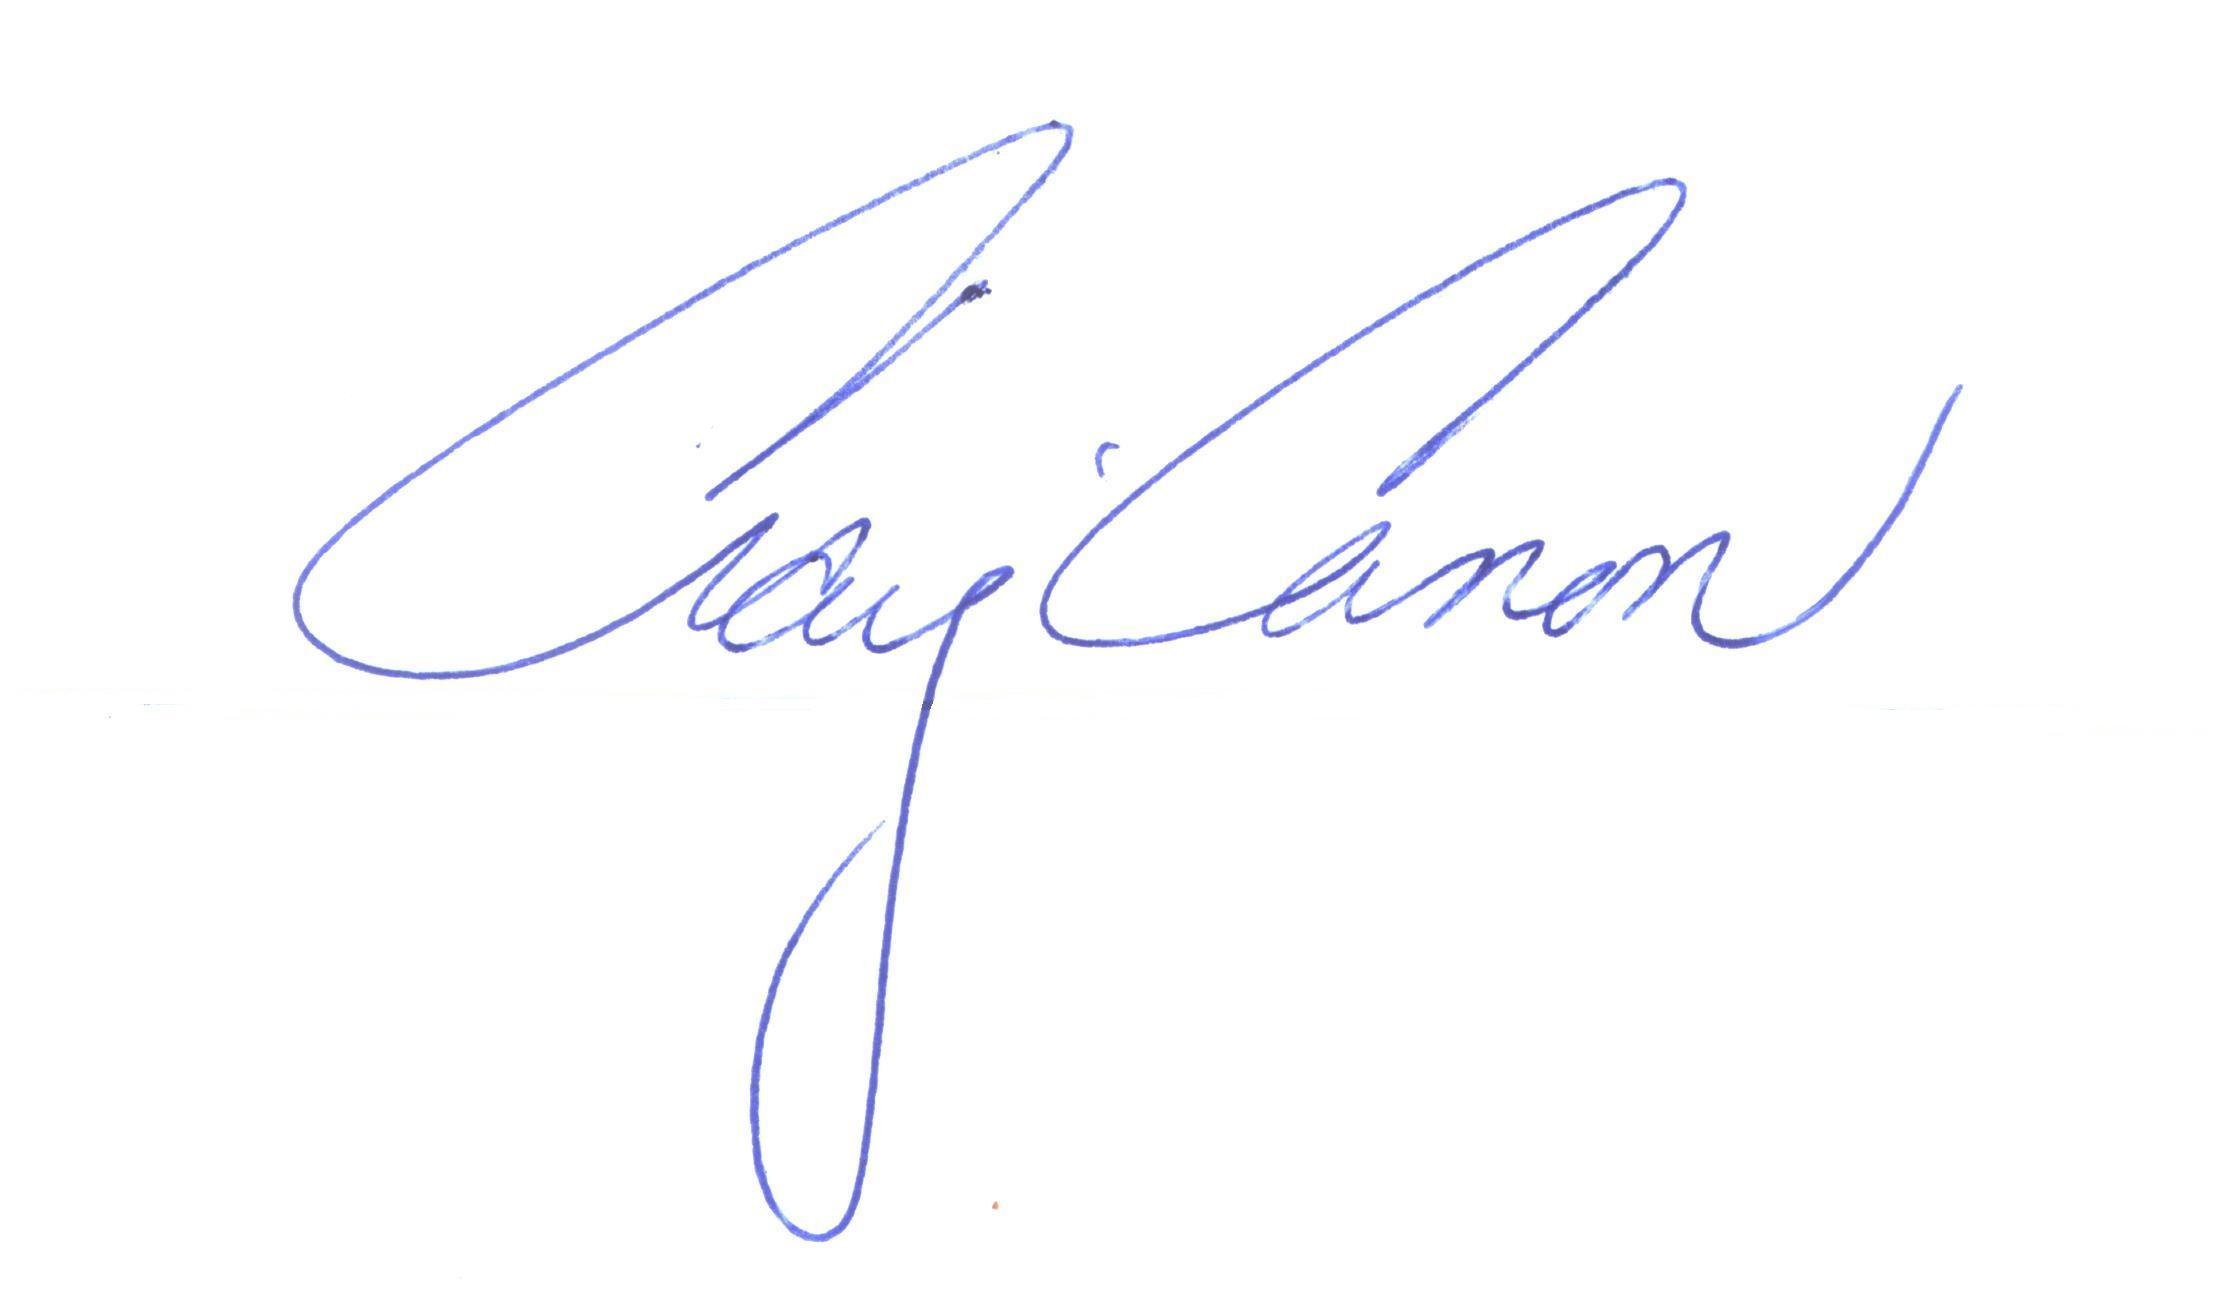 Craig Cannon